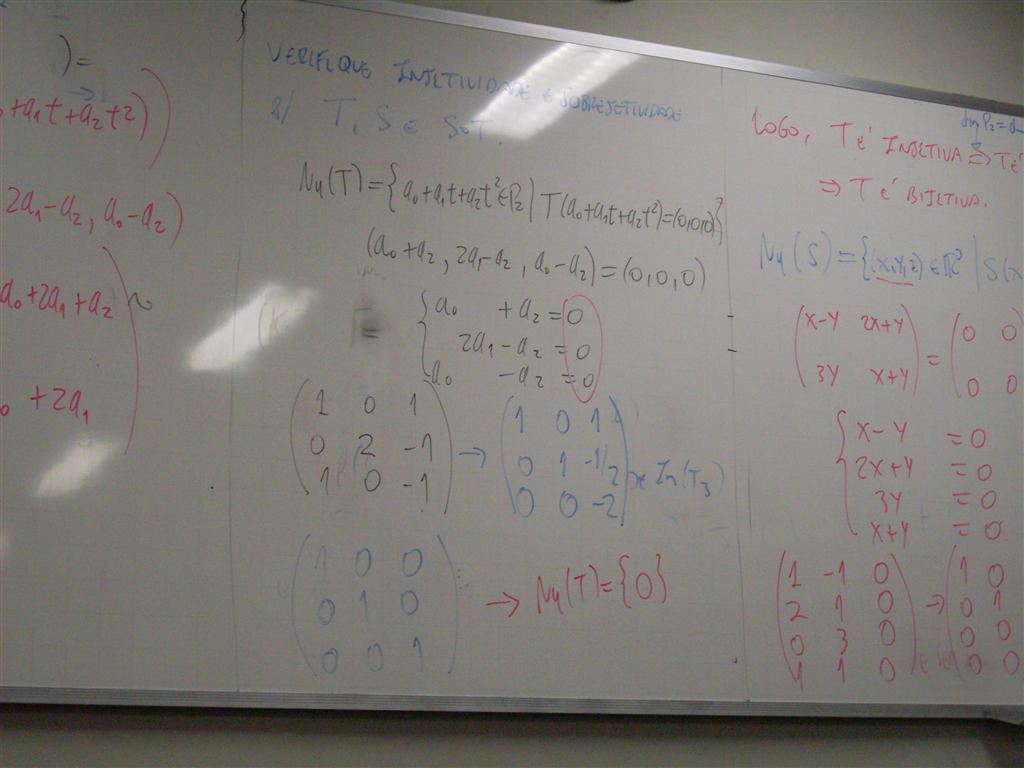 )=
+a₁t+a₂t²)
2a₁-a₂, a₀-a₂)
a₀+2a₁+a₂
+2a₁
VERIFIQUE INJETIVIDADE E SOBREJETIVIDADE
T, S E SoT.
Nu(T)={a₀+a₁t+a₂t²∈P₂| T(a₀+a₁t+a₂t²)=(0,0,0)}
(a₀+a₂, 2a₁-a₂, a₀-a₂)=(0,0,0)
a₀ +a₂=0
2a₁-a₂=0
a₀ -a₂=0
1 0 1 → 1 0 1
0 2 -1 0 1 -1/2
1 0 -1 0 0 -2
1 0 0
0 1 0 → Nu(T)={0}
0 0 1
LOGO, T É INJETIVA ⇒ T É
⇒ T É BIJETIVA.
Nu(S)={(x,y,z)∈R³ | S(x
x-y 2x+y = 0 0
3y x+y 0 0
x-y =0
2x+y =0
3y =0
x+y =0
1 -1 0 → 1 0
2 1 0 0 1
0 3 0 0 0
1 1 0 0 0